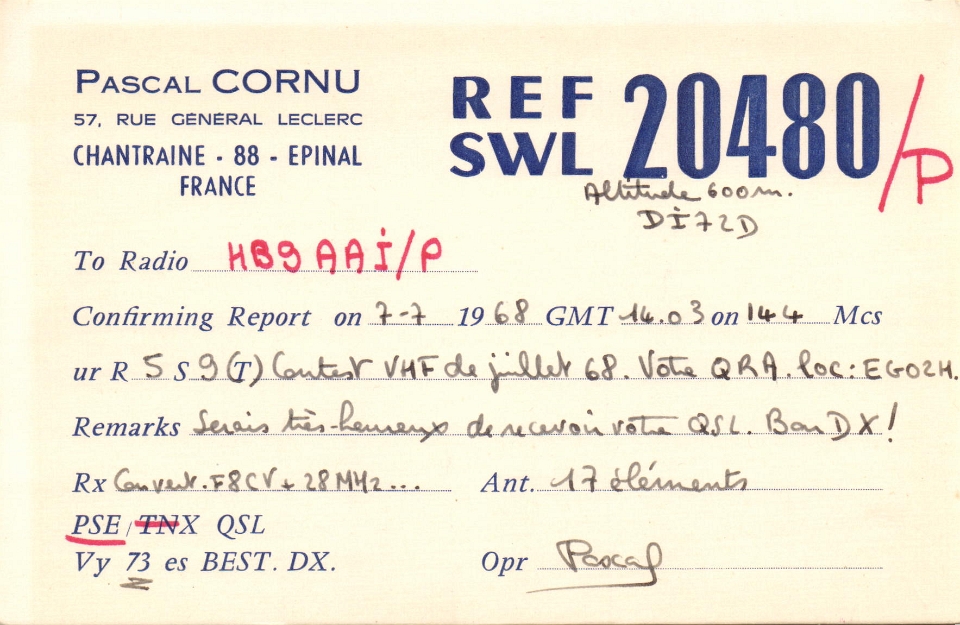 PASCAL CORNU
57, RUE GÉNÉRAL LECLERC
CHANTRAINE - 88 - EPINAL
FRANCE
REF
SWL 20480/P
Altitude 600m.
DI72D
To Radio HB9AAI/P
Confirming Report on 7-7 1968 GMT 14.03 on 144 Mcs
ur R 5 S 9 (T) Contest VHF de juillet 68. Votre QRA. loc: EG02H.
Remarks Serais très-heureux de recevoir votre QSL. Bon DX!
Rx Convert. F8CV + 28MHz... Ant. 17 éléments
PSE / TNX QSL
Vy 73 es BEST. DX. Opr Pascal